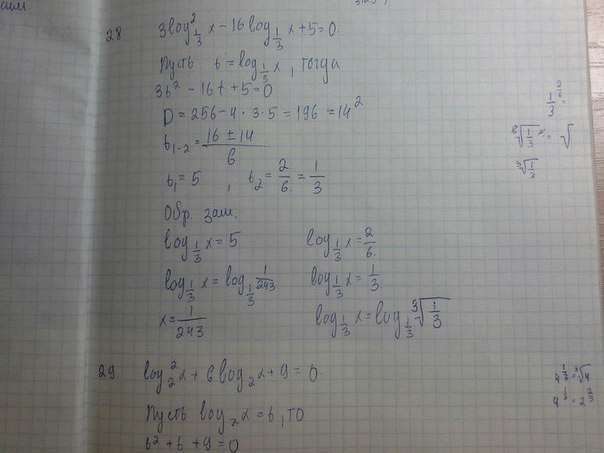 28 3log²_{1/3} x - 16 log_{1/3} x + 5 = 0
Пусть t = log_{1/3} x, тогда
3t² - 16t + 5 = 0
D = 256 - 4 · 3 · 5 = 196 = 14²
t_{1-2} = (16 ± 14)/6
t₁ = 5 , t₂ = 2/6 = 1/3
Обр. зам.
log_{1/3} x = 5 log_{1/3} x = 2/6
log_{1/3} x = log_{1/3} 1/243 log_{1/3} x = 1/3
x = 1/243 log_{1/3} x = log_{1/3} ∛(1/3)
29 log²₂ x + 6 log₂ x + 9 = 0
Пусть log₂ x = t, то
t² + t + 9 = 0
∛(1/3)
4^{1/3} = ∛4